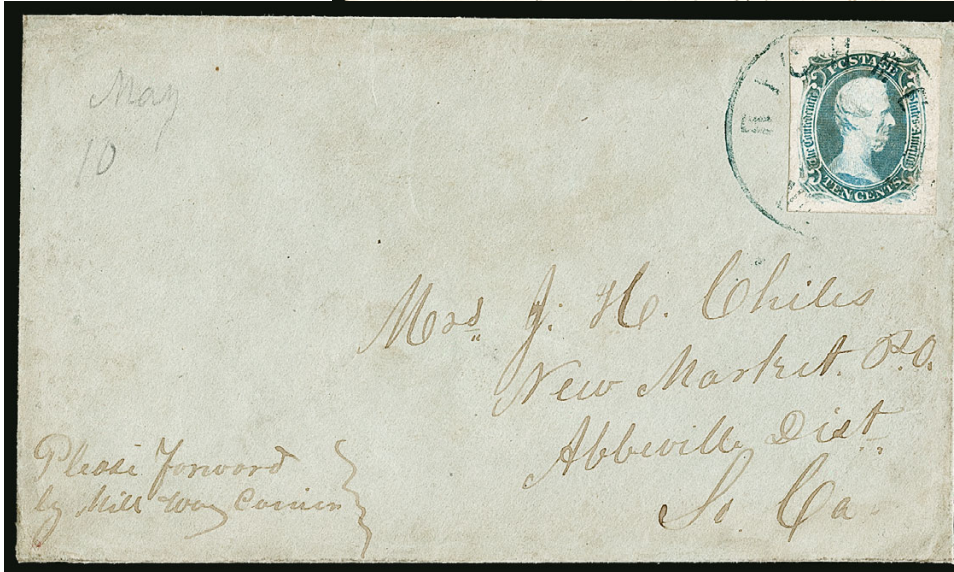 May
10
RICHM
POSTAGE
The Confederate States of America
TEN CENTS
Mrs J. H. Chiles
New Market. P.O.
Abbeville Dist
So. Ca.
Please forward
by Mill Way Carrier